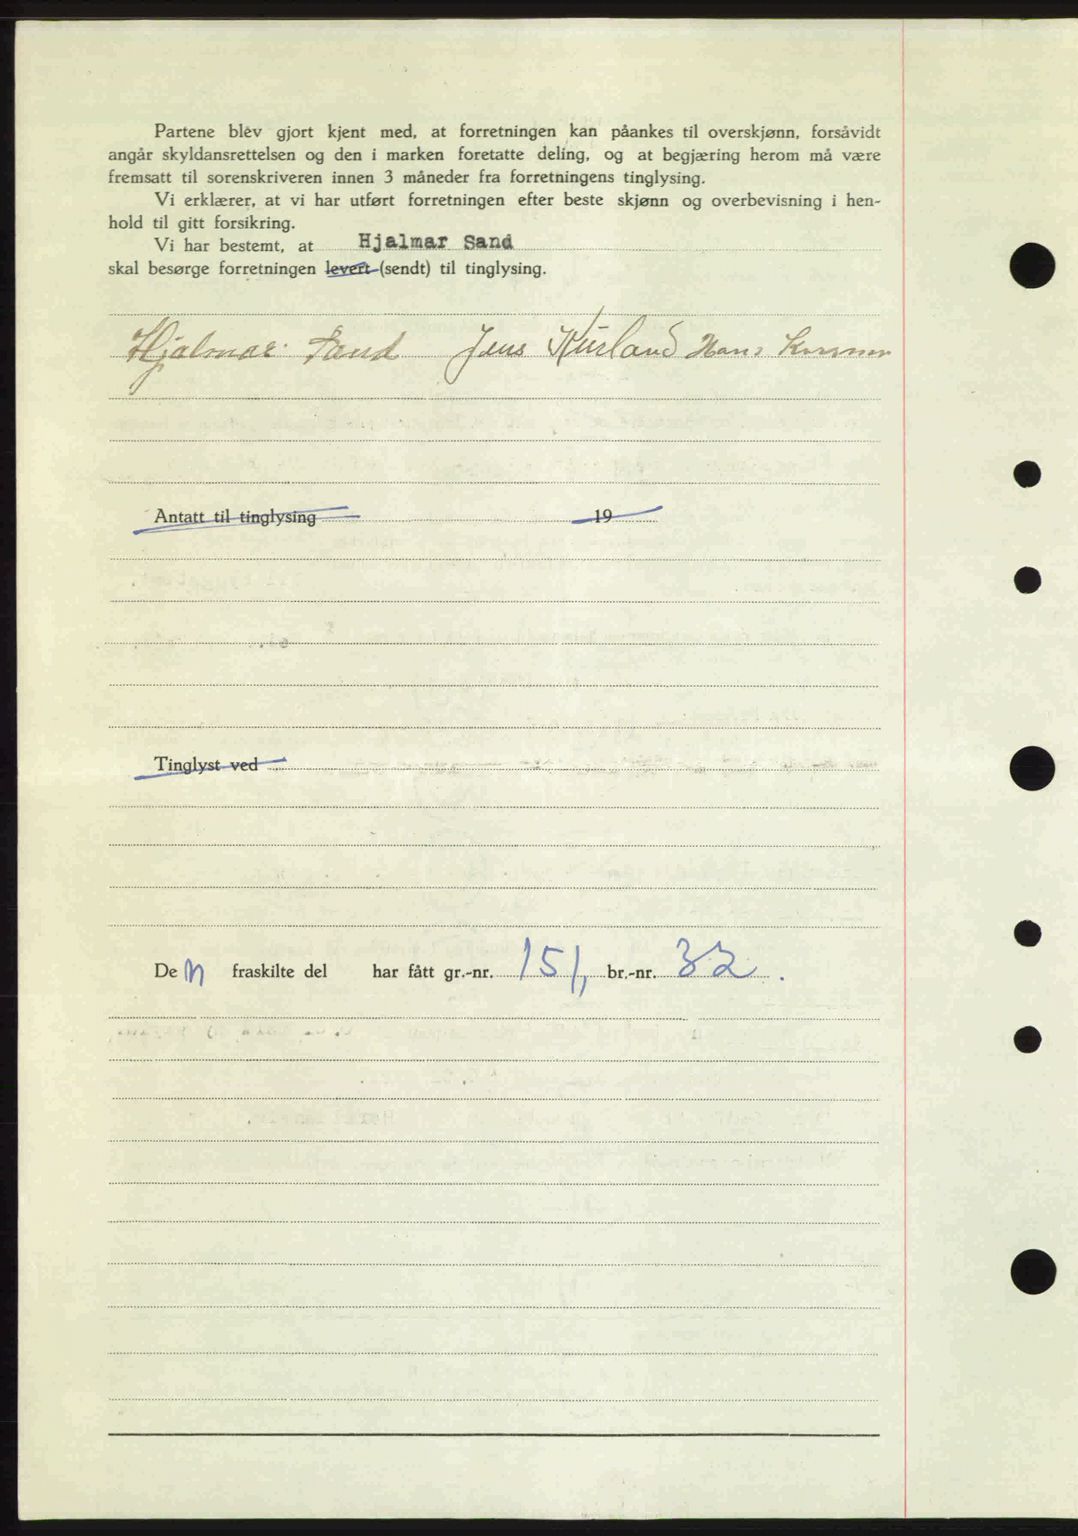 Partene blev gjort kjent med, at forretningen kan påankes til overskjønn, forsåvidt
angår skyldansrettelsen og den i marken foretatte deling, og at begjæring herom må være
fremsatt til sorenskriveren innen 3 måneder fra forretningens tinglysing.
Vi erklærer, at vi har utført forretningen efter beste skjønn og overbevisning i hen-
hold til gitt forsikring.
Vi har bestemt, at Hjalmar Sand
skal besørge forretningen levert (sendt) til tinglysing.
Hjalmar Sand Jens Hans
Antatt til tinglysing 19
Tinglyst ved
Den fraskilte del har fått gr.-nr. 151, br.-nr. 32.